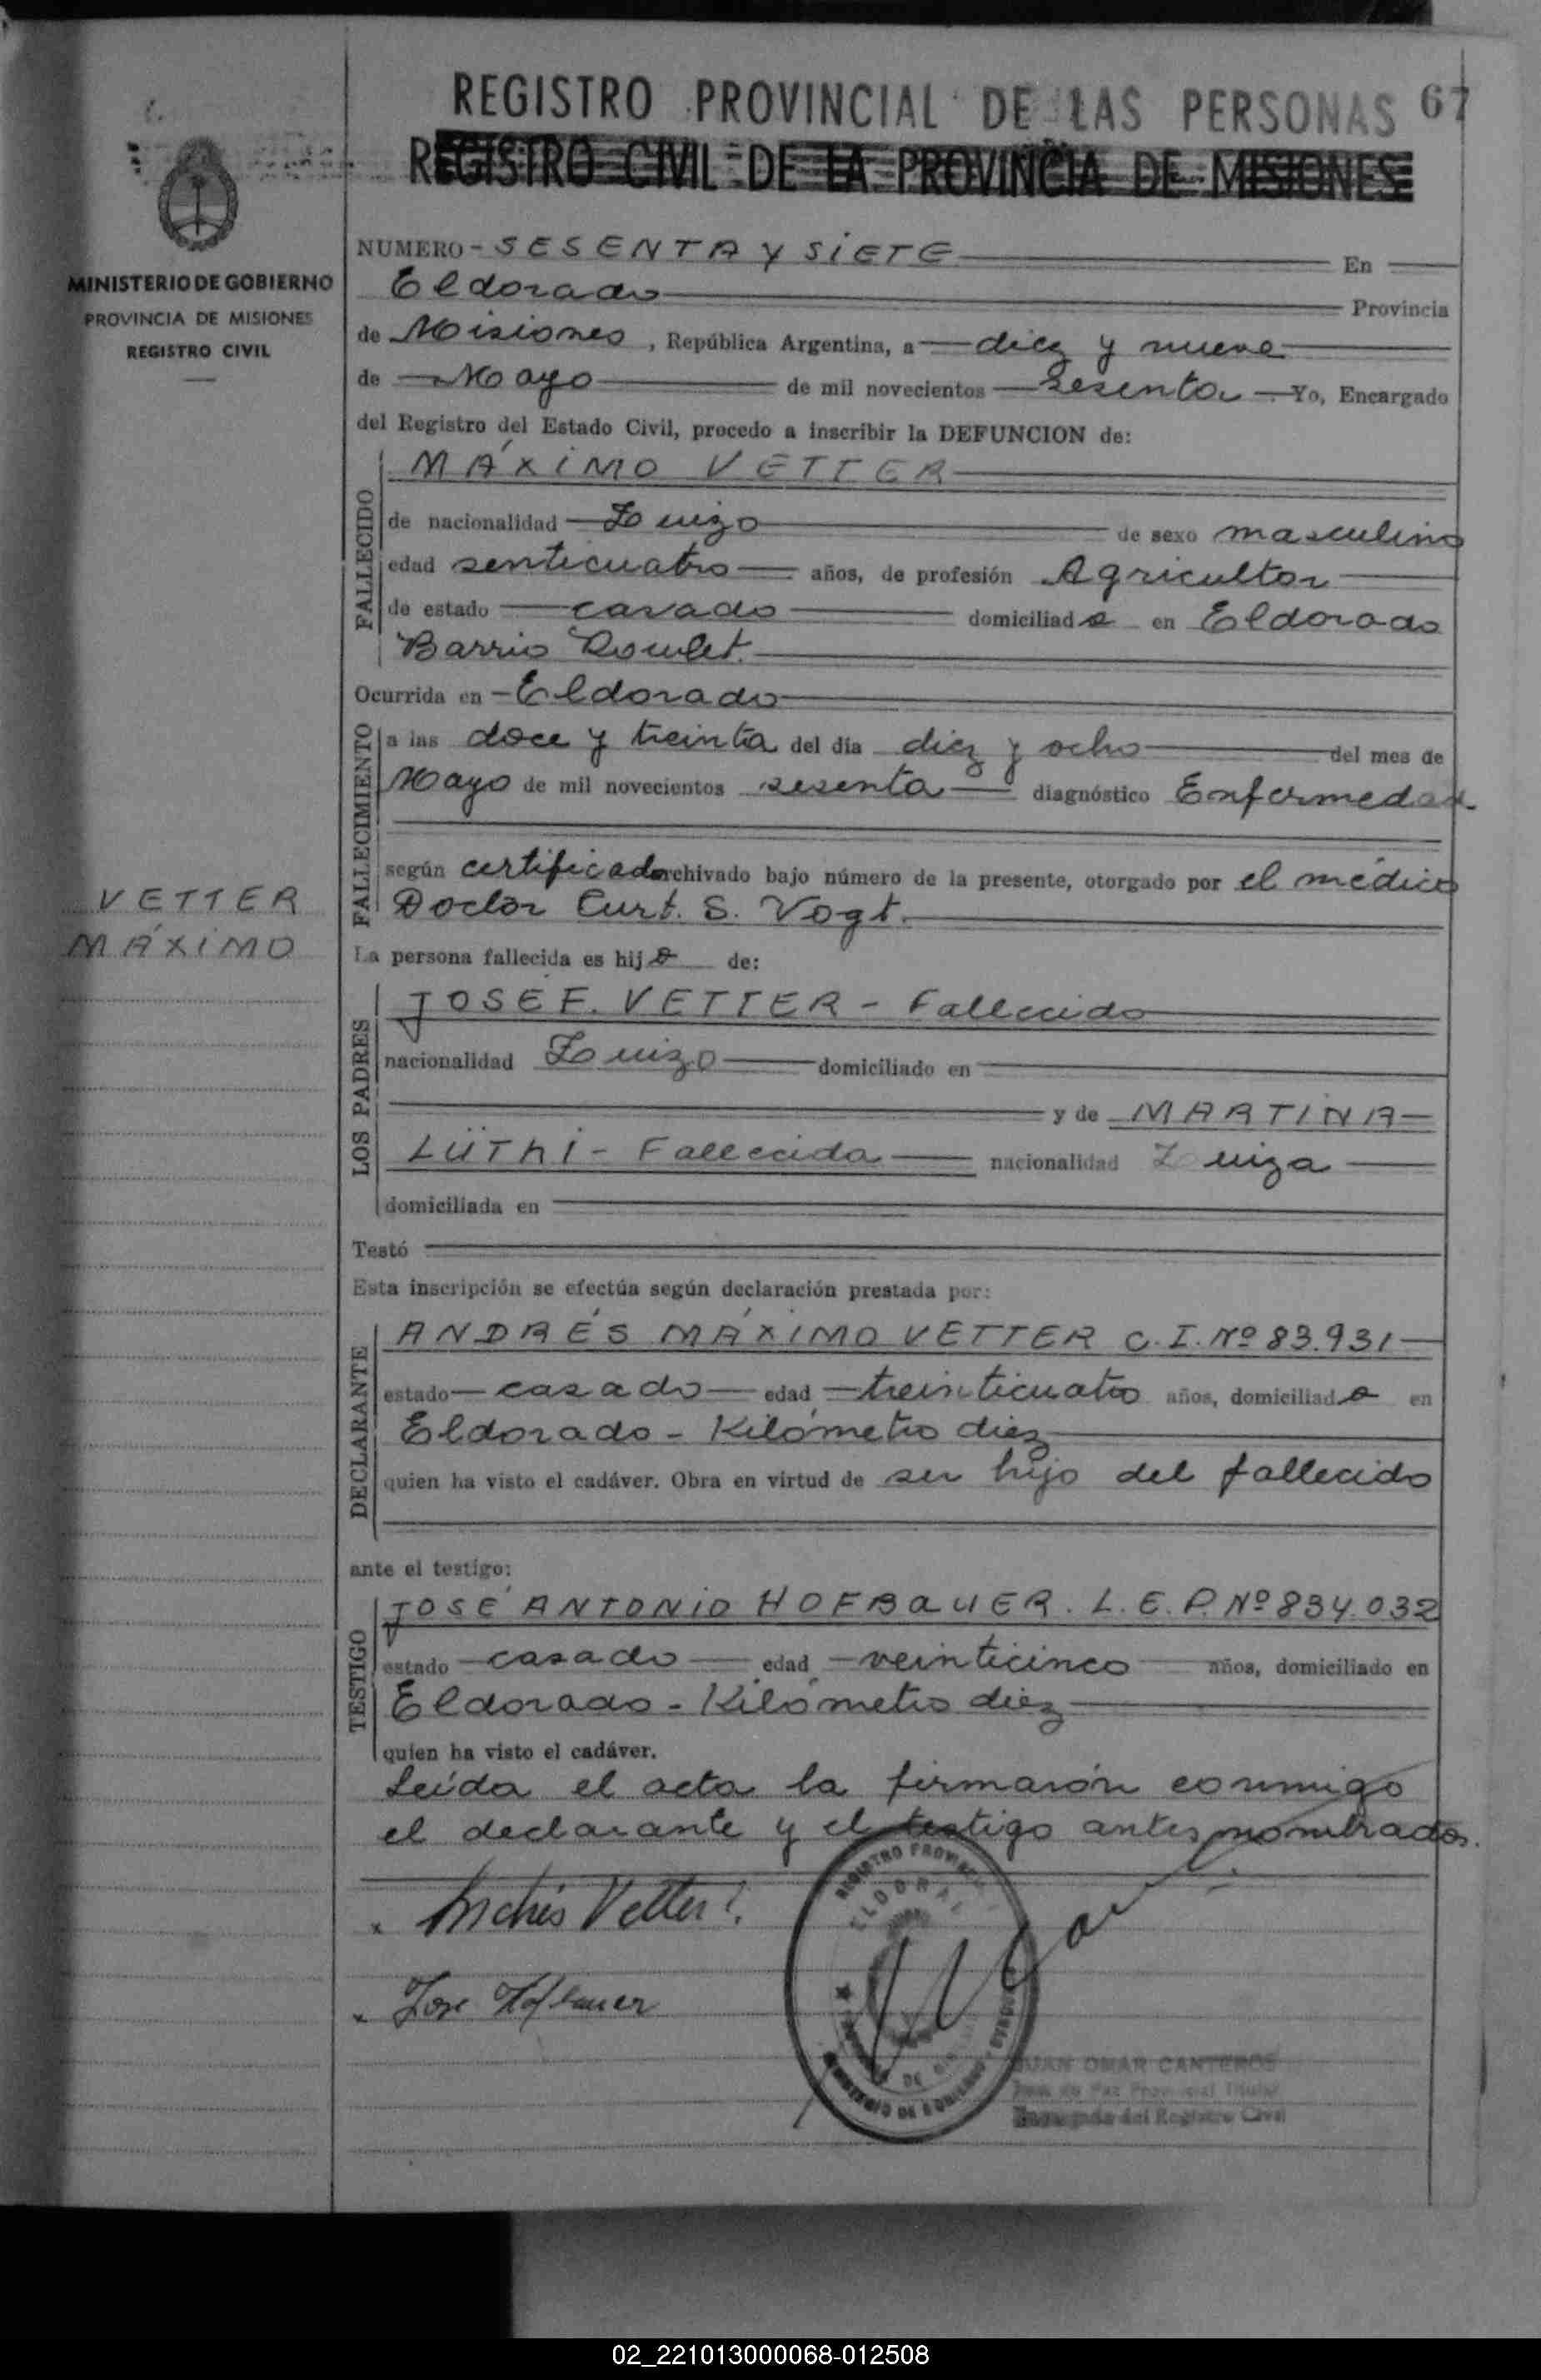 REGISTRO PROVINCIAL DE LAS PERSONAS 67
REGISTRO CIVIL DE LA PROVINCIA DE MISIONES
MINISTERIO DE GOBIERNO
PROVINCIA DE MISIONES
REGISTRO CIVIL
NUMERO - SESENTA y SiETE En
Eldorado Provincia
de Misiones, República Argentina, a diez y nueve
de Mayo de mil novecientos sesenta Yo, Encargado
del Registro del Estado Civil, procedo a inscribir la DEFUNCION de:
FALLECIDO
MÁXiMO VETTER
de nacionalidad Zuizo de sexo masculino
edad senticuatro años, de profesión Agricultor
de estado casado domiciliado en Eldorado
Barrio Roulet.
Ocurrida en - Eldorado
FALLECIMIENTO
a las doce y treinta del día diez y ocho del mes de
Mayo de mil novecientos sesenta diagnóstico Enfermedad
según certificado archivado bajo número de la presente, otorgado por el médico
Doctor Curt. S. Vogt.
VETTER
MÁXiMO
La persona fallecida es hijo de:
LOS PADRES
JOSEF. VETTER - Fallecido
nacionalidad Zuizo domiciliado en
y de MARTiNA
LÜThi - Fallecida nacionalidad Zuiza
domiciliada en
Testó
Esta inscripción se efectúa según declaración prestada por:
DECLARANTE
ANDRÉS MÁXIMO VETTER C.I. Nº 83.931
estado casado edad treinticuatro años, domiciliado en
Eldorado - Kilómetro diez
quien ha visto el cadáver. Obra en virtud de ser hijo del fallecido
ante el testigo:
TESTIGO
JOSÉ ANTONiO HOFBAUER. L.E.P. Nº 834.032
estado casado edad veinticinco años, domiciliado en
Eldorado - Kilómetro diez
quien ha visto el cadáver.
Leída el acta la firmarón conmigo
el declarante y el testigo antes nombrados.
Andrés Vetter
Jose Hofbauer
JUAN OMAR CANTEROS
Juez de Paz Provincial Titular
Encargado del Registro Civil
02_221013000068-012508